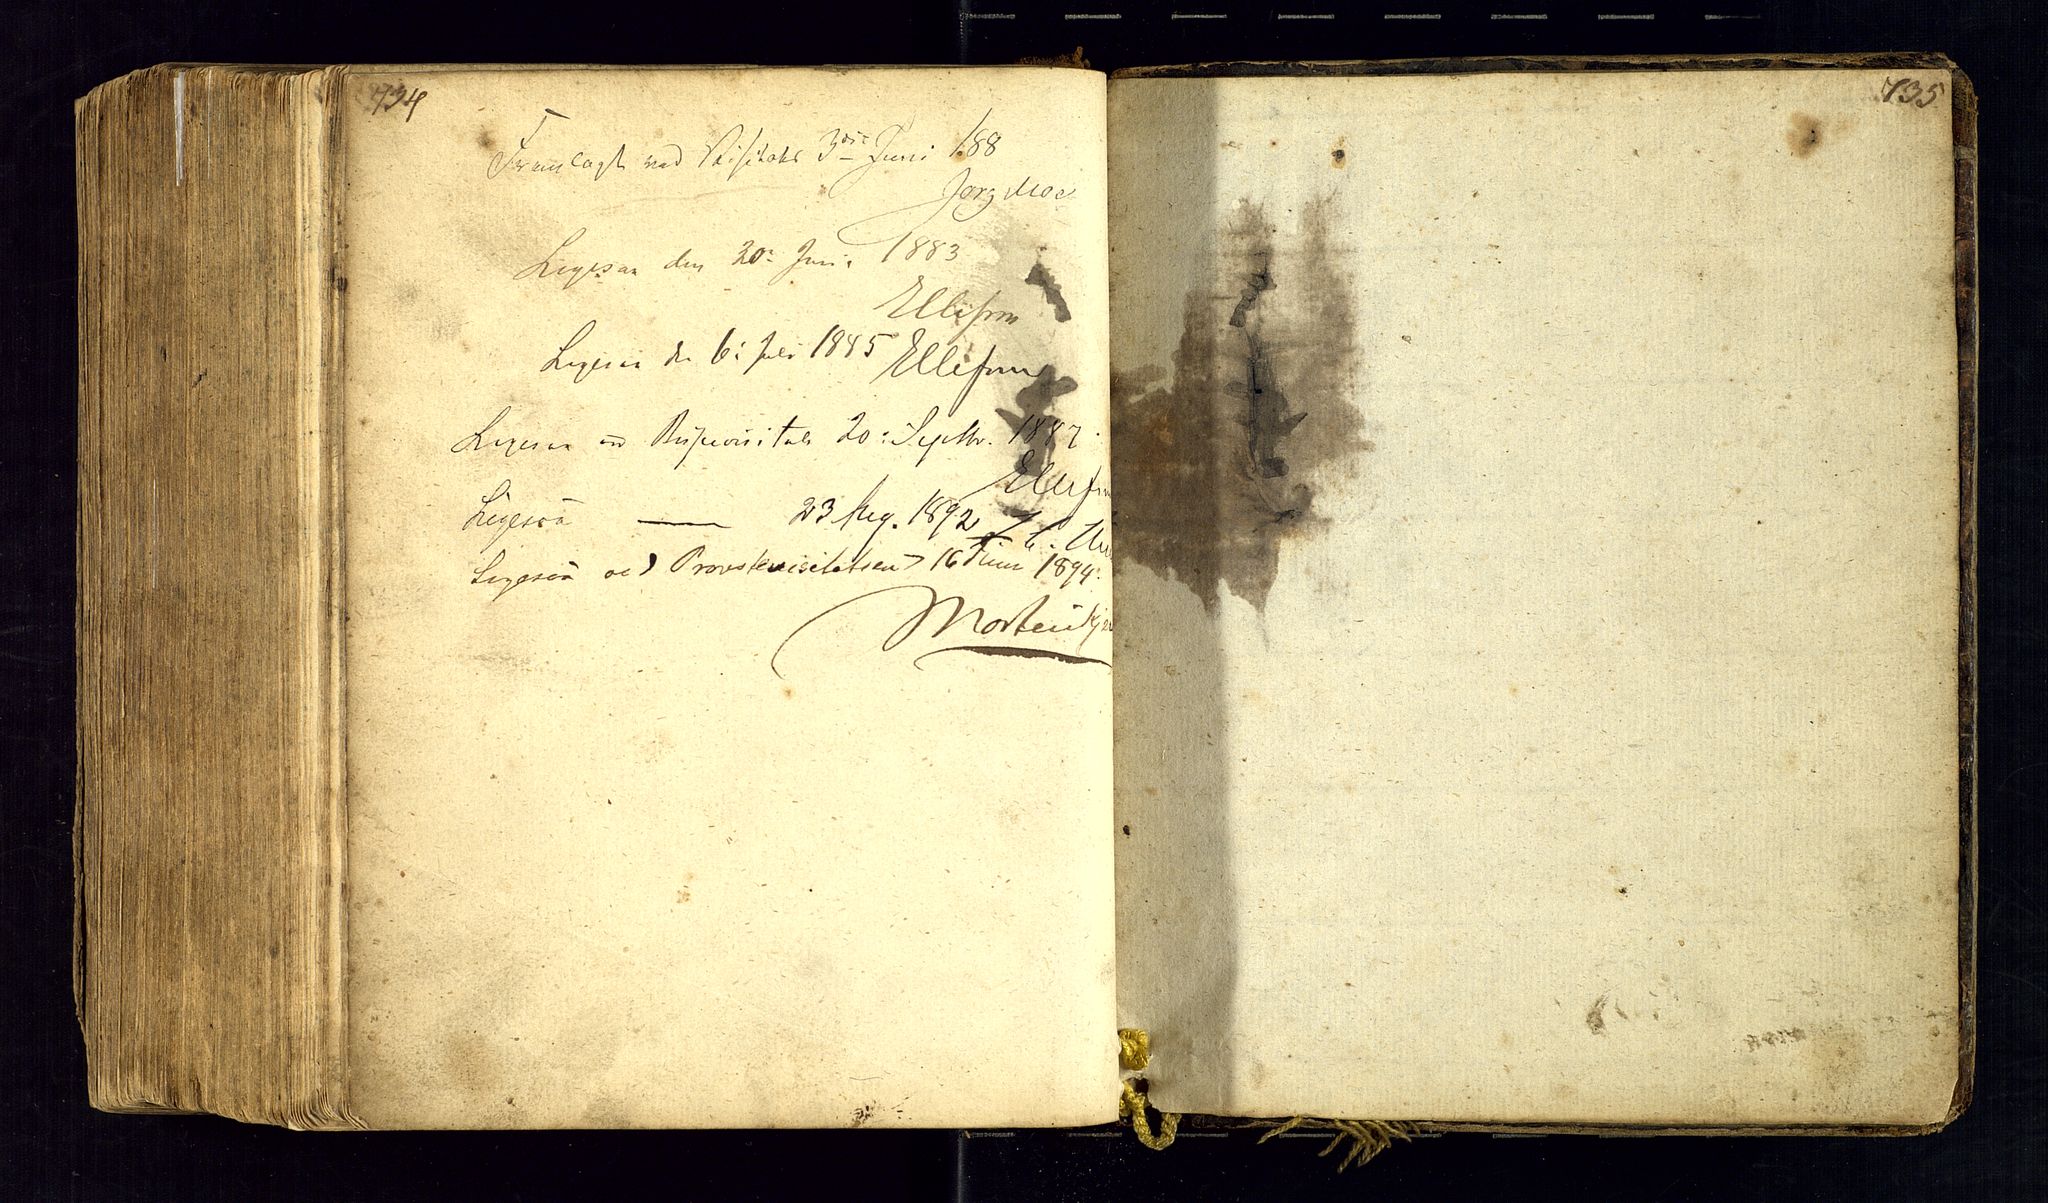 734
Fremlagt ved Visitats 3die Juni 188
Jörg Moe
Ligesaa den 20e Juni 1883
Ellefsen
Ligesaa den 6e Juli 1885 Ellefsen
Ligesaa ved Bispevisitats 20e Septbr. 1887.
Ellefsen
Ligesaa — 23 Aug. 1892
Ligesaa ved Provstevisitatsen 16 Juni 1894.
Morten
735